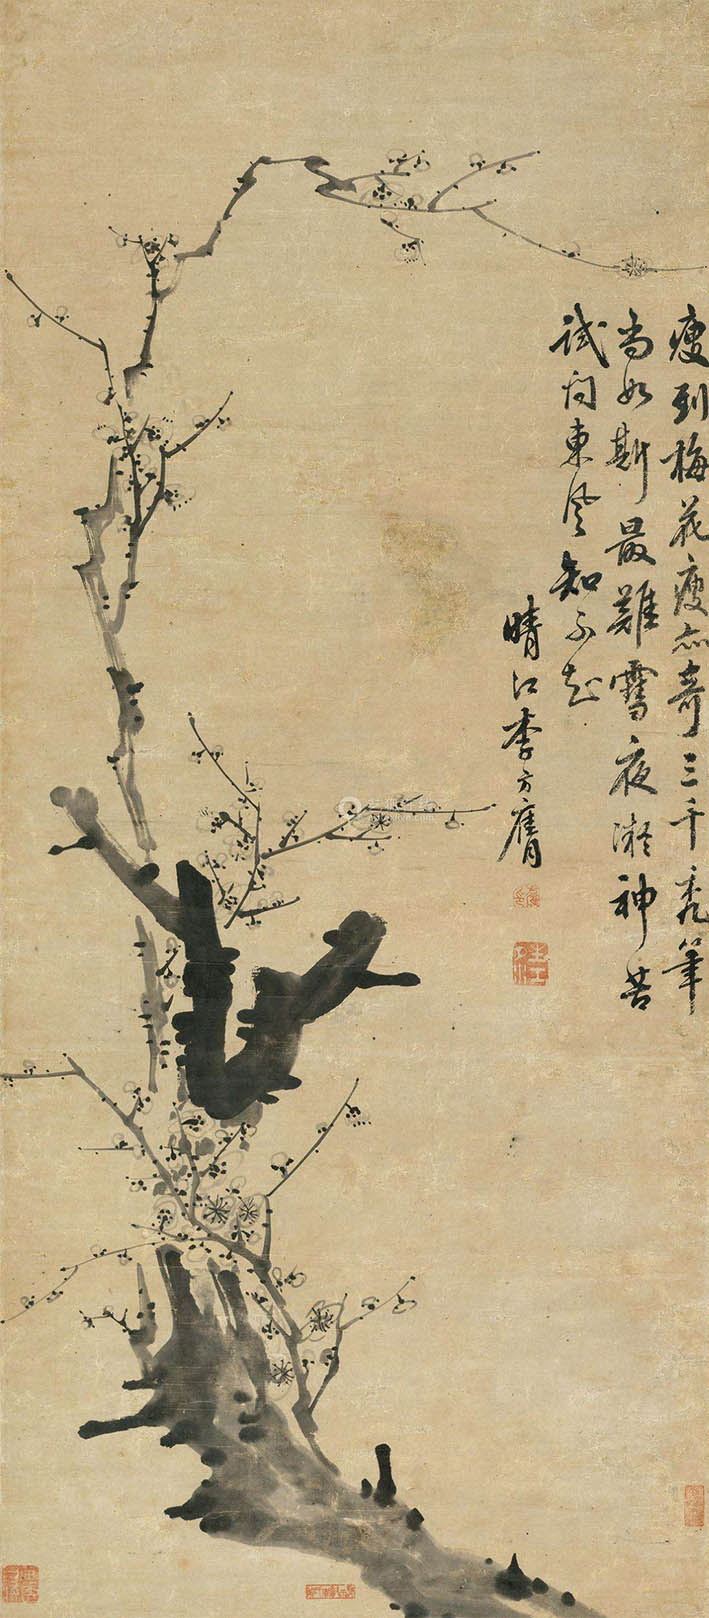 瘦到梅花瘦亦奇三千禿筆
尚如斯最難雪夜凝神苦
試問東風知不知
晴江李方膺